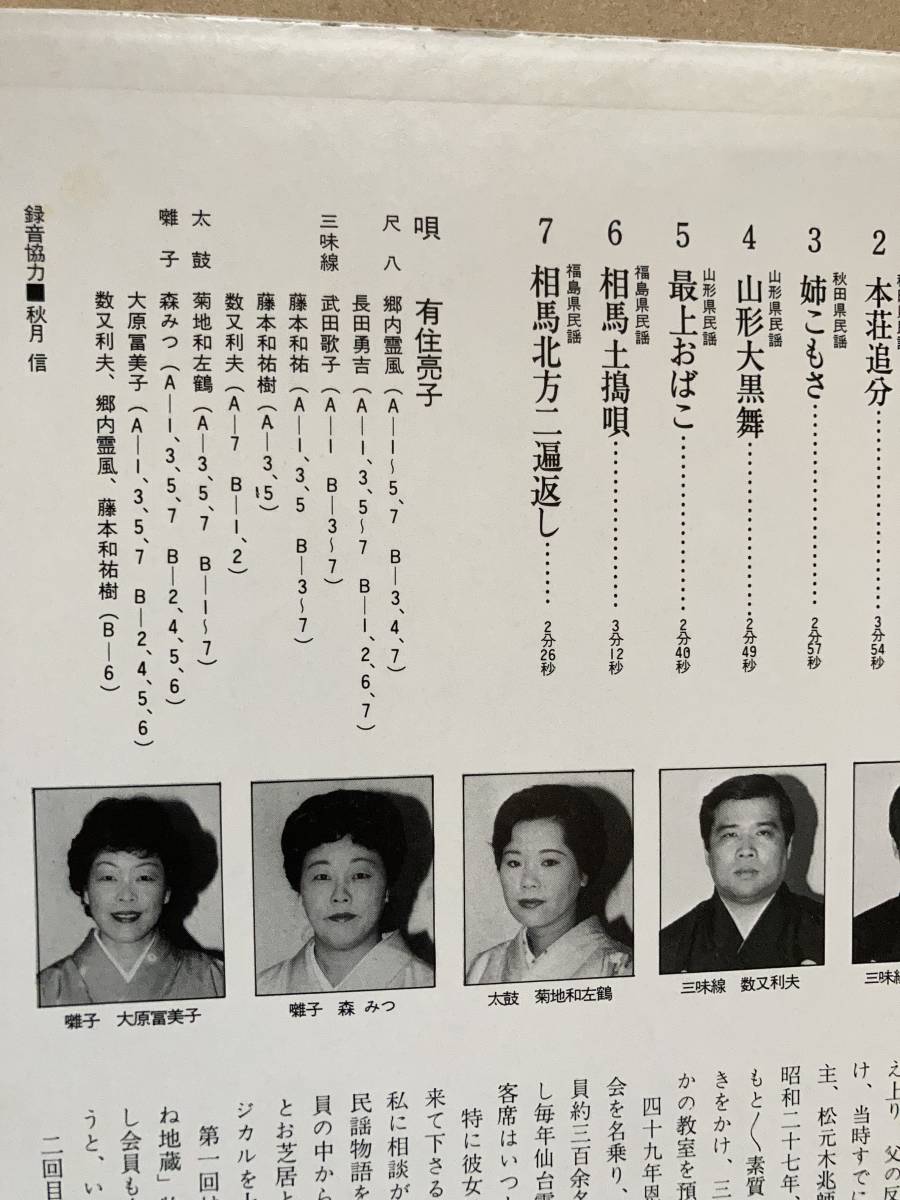 2 本荘追分 3分54秒
秋田県民謡
3 姉こもさ 2分57秒
山形県民謡
4 山形大黒舞 2分49秒
山形県民謡
5 最上おばこ 2分40秒
福島県民謡
6 相馬土搗唄 3分12秒
福島県民謡
7 相馬北方二遍返し 2分26秒
唄 有住亮子
尺八 郷内霊風（A—1～5、7 B—3、4、7）
長田勇吉（A—1、3、5～7 B—1、2、6、7）
三味線 武田歌子（A—1 B—3～7）
藤本和祐（A—1、3、5 B—3～7）
藤本和祐樹（A—3、5）
数又利夫（A—7 B—1、2）
太鼓 菊地和左鶴（A—3、5、7 B—1～7）
囃子 森みつ（A—1、3、5、7 B—2、4、5、6）
大原冨美子（A—1、3、5、7 B—2、4、5、6）
数又利夫、郷内霊風、藤本和祐樹（B—6）
録音協力■秋月 信
三味線
三味線 数又利夫
太鼓 菊地和左鶴
囃子 森 みつ
囃子 大原冨美子
え上り 父の反
け、当時すでに
主、松元木兆師
昭和二十七年
もと〳〵素質
きをかけ、三
かの教室を預
四十九年恩
会を名乗り、
員約三百余名
し毎年仙台電
客席はいつ
特に彼女
来て下さる
私に相談が
民謡物語を
員の中から
とお芝居と
ジカルを
第一回は
ね地蔵
し会員も
うと、い
二回目